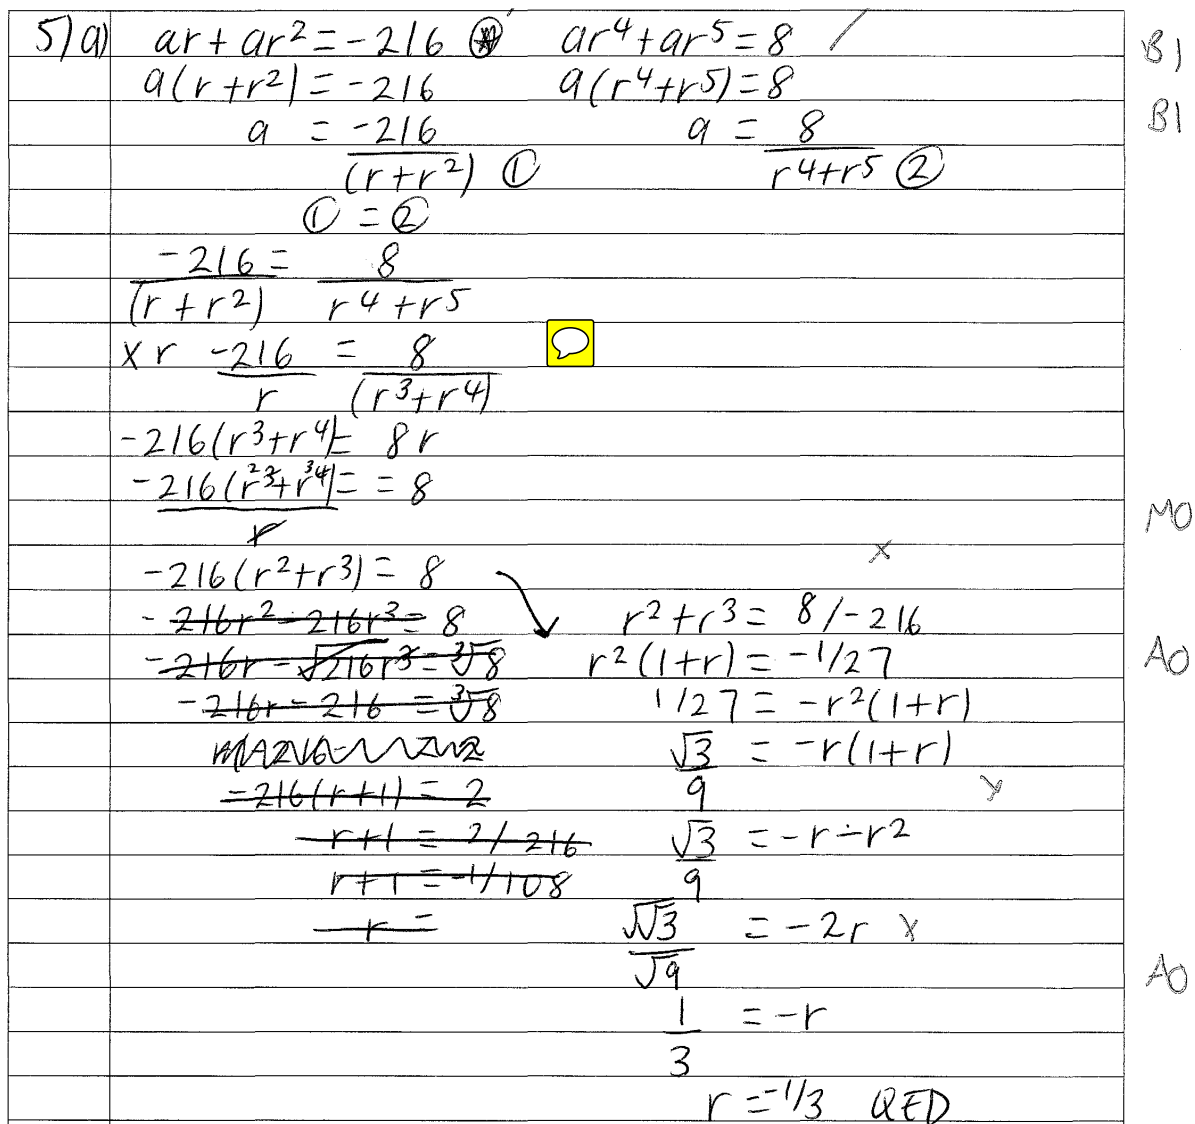 5)a) ar + ar² = -216 ⊛ ar⁴ + ar⁵ = 8 B1
a(r + r²) = -216 a(r⁴ + r⁵) = 8
a = -216/(r + r²) ① a = 8/(r⁴ + r⁵) ② B1
① = ②
-216/(r + r²) = 8/(r⁴ + r⁵)
x r -216/r = 8/(r³ + r⁴)
-216(r³ + r⁴) = 8r
-216(r²³ + r³⁴)/r = = 8 M0
-216(r² + r³) = 8 x
-216r² - 216r³ = 8 r² + r³ = 8/-216
-216r - √216r³ = ³√8 r²(1 + r) = -1/27 A0
-216r - 216 = ³√8 1/27 = -r²(1 + r)
√3/9 = -r(1 + r)
-216(r + 1) = 2 x
r + 1 = 2/-216 √3/9 = -r - r²
r + 1 = -1/108
r = √√3/√9 = -2r x
1/3 = -r A0
r = -1/3 QED